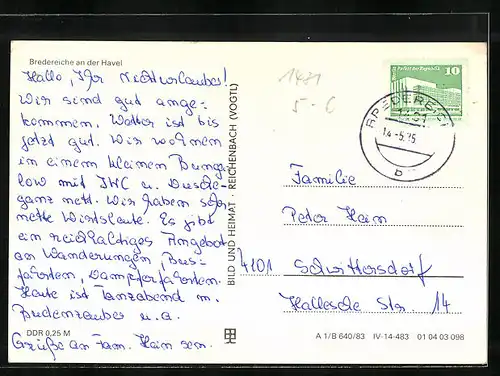 Bredereiche an der Havel
Hallo, Ihr Nichturlauber!
Wir sind gut ange-
kommen, Wetter ist bis
jetzt gut. Wir wohnen
in einem kleinen Bunga-
low mit IWC u. Dusche
ganz nett. Wir haben sehr
nette Wirtsleute. Es gibt
ein reichhaltiges Angebot
an Wanderungen, Bus-
fahrten, Dampferfahrten.
Heute ist Tanzabend m.
Budenzauber u. a.
DDR 0,25 M
Grüße an Fam. Hein sen.
BILD UND HEIMAT · REICHENBACH (VOGTL)
1481
5-C
10
BREDEREICHE
1431
14.-5.
b
Familie
Peter Hein
4101 Schwittersdorf
Hallesche Str. 14
A 1/B 640/83 IV-14-483 01 04 03 098